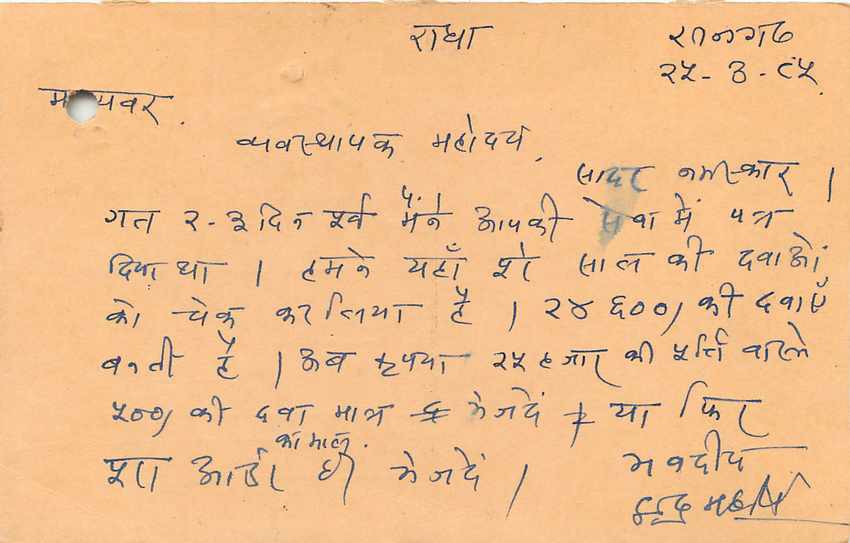 राधा
रतनगढ
२५-३-९५
मान्यवर
व्यवस्थापक महोदय,
सादर नमस्कार ।
गत २-३ दिन पूर्व मैंने आपकी सेवा में पत्र
दिया था । हमने यहाँ पूरे साल की दवाओं
को चेक कर लिया है । २४६००) की दवाएँ
बनती है । अब कृपया २५ हजार की पूर्ति वास्ते
५००) की दवा मात्र भेजदें या फिर
पूरा आर्डर का माल ही भेजदें ।
भवदीय